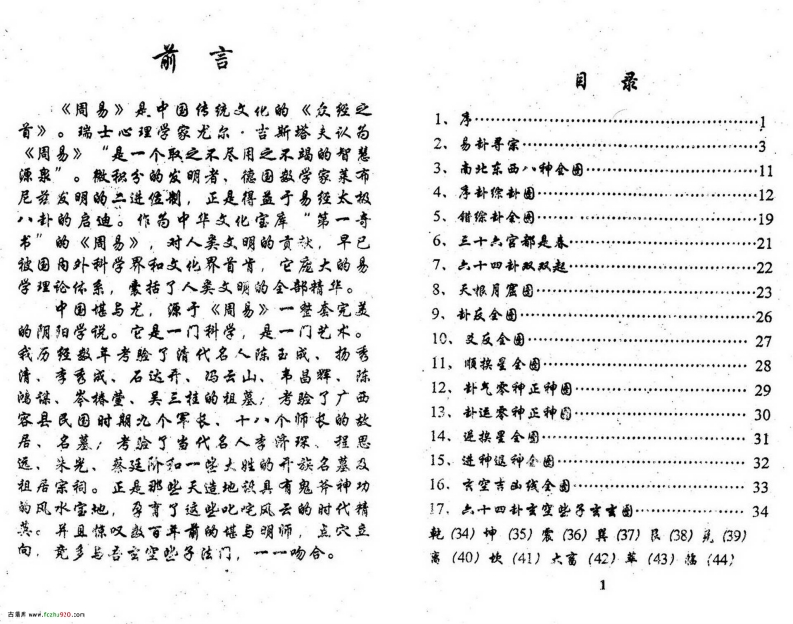 前言
《周易》是中国传统文化的《众经之
首》。瑞士心理学家尤尔·古斯塔夫认为
《周易》“是一个取之不尽用之不竭的智慧
源泉”。微积分的发明者、德国数学家莱布
尼兹发明的二进位制，正是得益于易经太极
八卦的启迪。作为中华文化宝库“第一奇
书”的《周易》，对人类文明的贡献，早已
被国内外科学界和文化界首肯，它庞大的易
学理论体系，囊括了人类文明的全部精华。
中国堪与尤，源于《周易》一整套完美
的阴阳学说。它是一门科学，是一门艺术。
我历经数年考验了清代名人陈玉成、扬秀
清、李秀成、石达开、冯云山、韦昌辉、陈
鸿谋、岑椿萱、吴三桂的祖墓；考验了广西
容县民国时期九个军长、十八个师长的故
居、名墓；考验了当代名人李济琛、程思
远、朱光、蔡廷阶和一些大姓的开族名墓及
祖居宗祠。正是那些天造地设具有鬼斧神功
的风水宫地，孕育了这些叱咤风云的时代精
英。并且惊叹数百年前的堪与明师，点穴立
向，竟多与吾玄空些子法门，一一吻合。
目录
1、序……1
2、易卦寻宗……3
3、南北东西八神全图……11
4、序卦综卦图……12
5、错综卦全图……19
6、三十六宫都是春……21
7、六十四卦双双起……22
8、天恨月窟图……23
9、卦反全图……26
10、爻反全图……27
11、顺挨星全图……28
12、卦气零神正神图……29
13、卦运零神正神图……30
14、逆挨星全图……31
15、进神退神全图……32
16、玄空吉凶线全图……33
17、六十四卦玄空些子玄玄图……34
乾（34）坤（35）震（36）巽（37）艮（38）兑（39）
离（40）坎（41）大畜（42）萃（43）临（44）
1
古易库 www.fczhu920.com